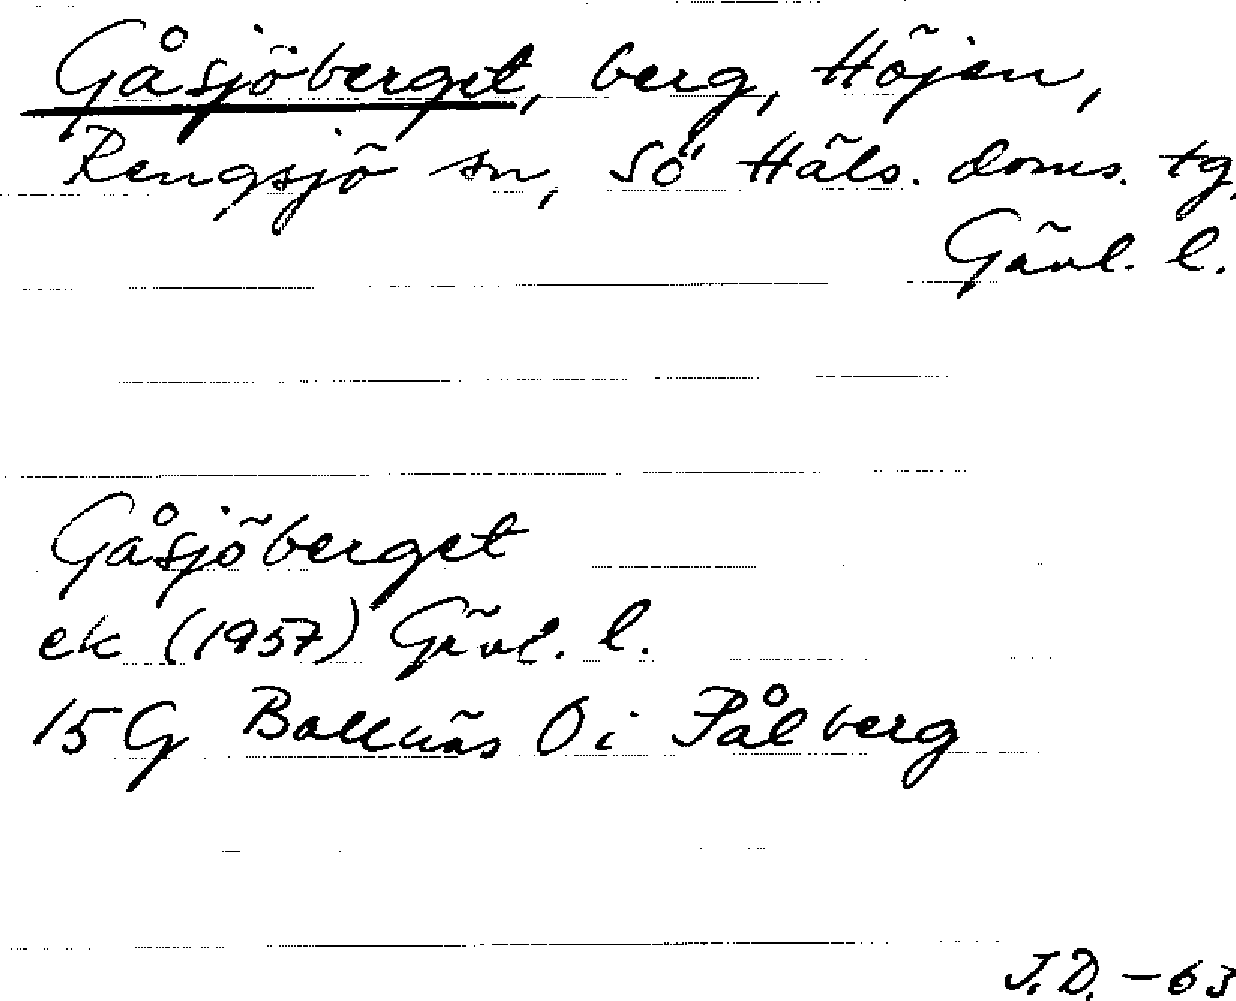 Gåsjöberget, berg, Höjen,
Rengsjö sn, Sö Häls. doms. tg.
Gävl. l.
Gåsjöberget
ek (1957) Gävl. l.
15G Bollnäs Öi Pålberg
J.D. -63